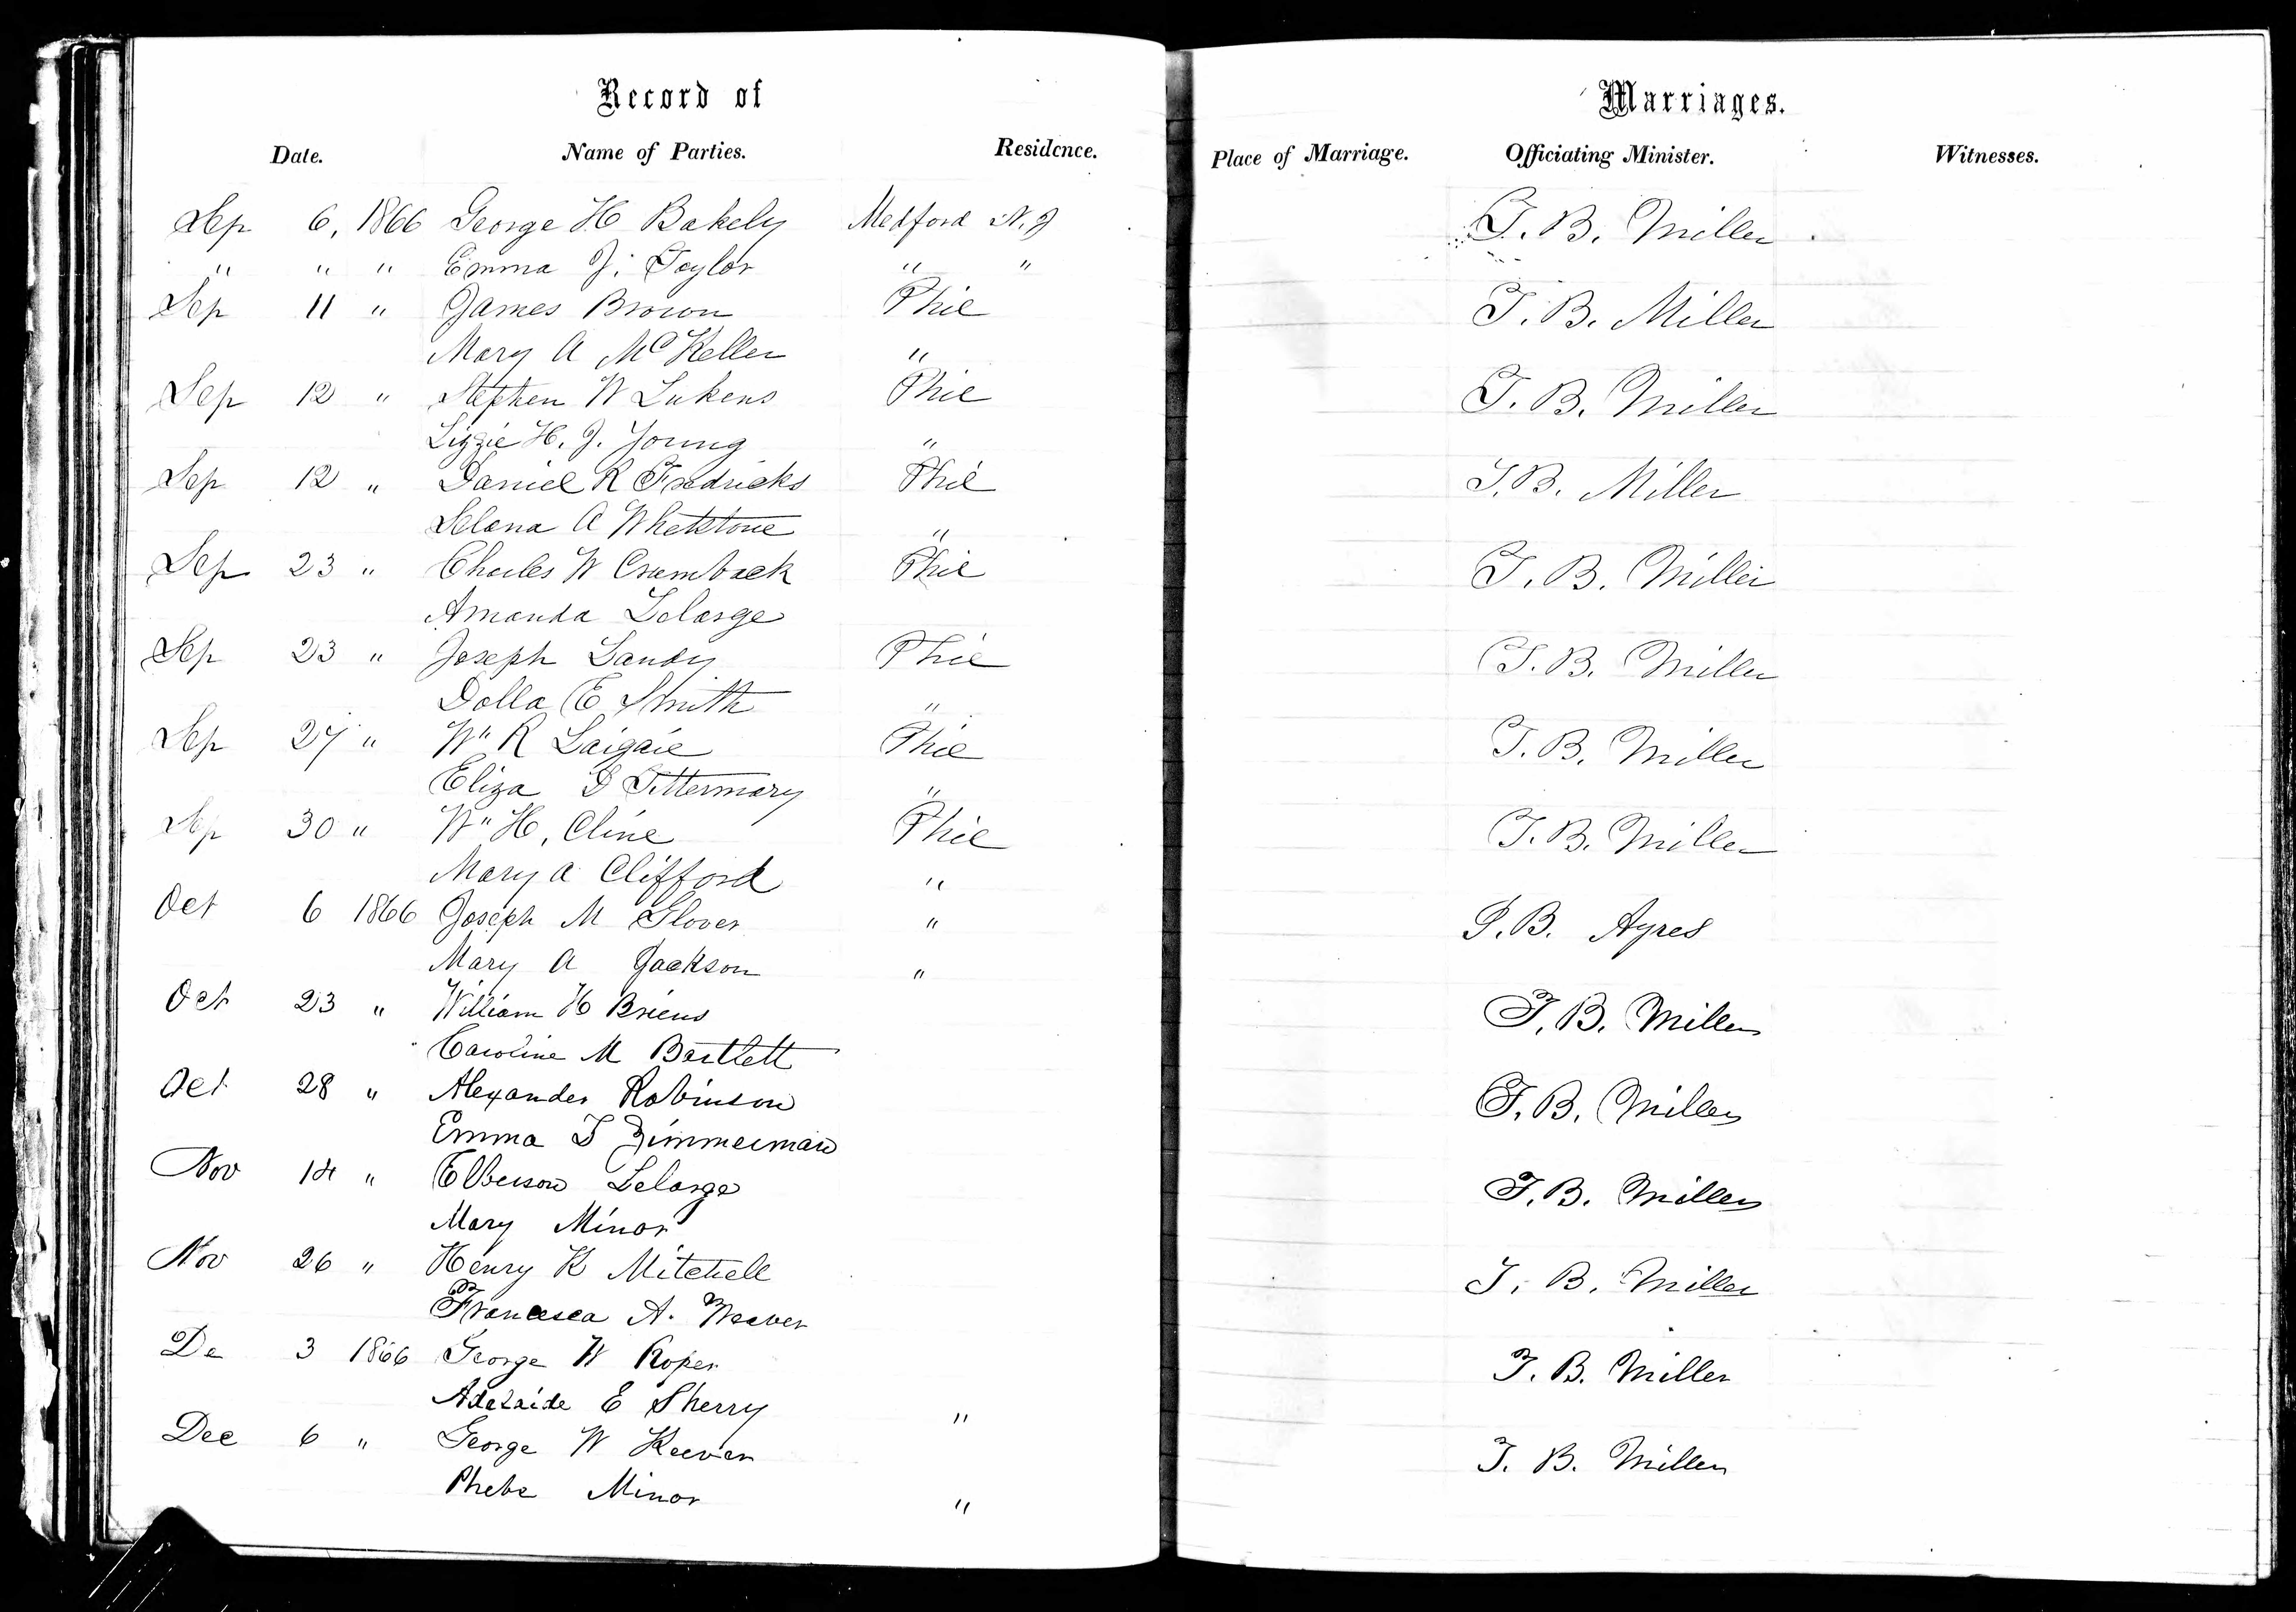 Record of Marriages.
Date. Name of Parties. Residence. Place of Marriage. Officiating Minister. Witnesses.
Sep 6, 1866 George H Bakely Medford N.J T. B. Miller
" " " Emma J. Taylor " "
Sep 11 " James Brown Phil T. B. Miller
Mary A McKeller "
Sep 12 " Stephen W Lukens Phil T. B. Miller
Lizzie H. J. Young "
Sep 12 " Daniel R Fredricks Phil T. B. Miller
Selena A Whetstone "
Sep 23 " Charles W Crumback Phil T. B. Miller
Amanda Delarge
Sep 23 " Joseph Landy Phil T. B. Miller
Dolla E Smith "
Sep 27 " Wm R Laigaie Phil T. B. Miller
Eliza D Sittermary "
Sep 30 " Wm H. Cline Phil T. B. Miller
Mary A Clifford "
Oct 6 1866 Joseph M Glover " P. B. Ayres
Mary A Jackson "
Oct 23 " William H Briens T. B. Miller
Caroline M Bartlett
Oct 28 " Alexander Robinson T. B. Miller
Emma T Zimmerman
Nov 14 " Elberson Delarge T. B. Miller
Mary Minor
Nov 26 " Henry K Mitchell T. B. Miller
Francesca A. Weaver
De 3 1866 George W Roper T. B. Miller
Adelaide E Sherry "
Dec 6 " George W Keever T. B. Miller
Phebe Minor "